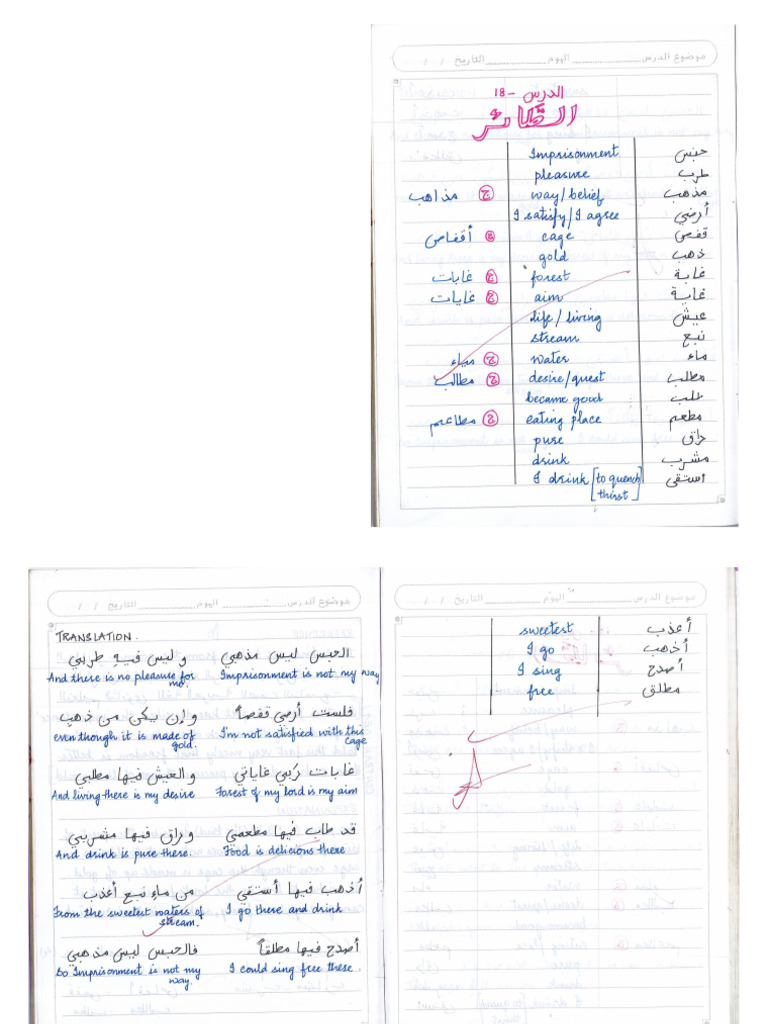 موضوع الدرس اليوم التاريخ / /
الدرس - 18
الطائر
حبس Imprisonment
طرب pleasure
مذهب way/belief ج مذاهب
أرضي I satisfy/I agree
قفص cage ج أقفاص
ذهب gold
غابة forest ج غابات
غاية aim ج غايات
عيش life/living
نبع stream
ماء water ج مياء
مطلب desire/quest ج مطالب
طلب became good
مطعم eating place ج مطاعم
راق pure
مشرب drink
أستقى I drink [to quench thirst]
موضوع الدرس اليوم التاريخ / /
TRANSLATION.
الحبس ليس مذهبي وليس فيه طربي
Imprisonment is not my way And there is no pleasure for me.
فلست أرضي قفصاً وإن يكى من ذهب
I'm not satisfied with this cage even though it is made of gold.
غابات ربي غاياتي والعيش فيها مطلبي
Forest of my lord is my aim And living there is my desire
قد طاب فيها مطعمي وراق فيها مشربي
Food is delicious there And drink is pure there.
أذهب فيها أستقي من ماء نبع أعذب
I go there and drink From the sweetest waters of stream.
أصدح فيها مطلقاً فالحبس ليس مذهبي
I could sing free there. So Imprisonment is not my way.
موضوع الدرس اليوم التاريخ / /
أعذب sweetest
أذهب I go
أصدح I sing
مطلق free